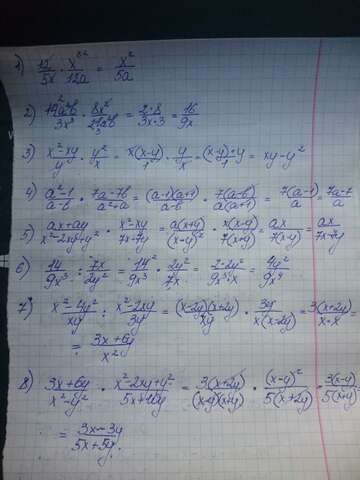 1) 12/5x · x³/12a = x²/5a
2) 14a²b/3x³ · 8x²/21a²b = 2·8/3x·3 = 16/9x
3) x²-xy/y · y²/x = x(x-y)/1 · y/x = (x-y)·y/1 = xy-y²
4) a²-1/a-b · 7a-7b/a²+a = (a-1)(a+1)/a-b · 7(a-b)/a(a+1) = 7(a-1)/a = 7a-7/a
5) ax+ay/x²-2xy+y² · x²-xy/7x+7y = a(x+y)/(x-y)² · x(x-y)/7(x+y) = ax/7(x-y) = ax/7x-7y
6) 14/9x³ : 7x/2y² = 14²/9x³ · 2y²/7x = 2·2y²/9x³·x = 4y²/9x⁴
7) x²-4y²/xy : x²-2xy/3y = (x-2y)(x+2y)/xy · 3y/x(x-2y) = 3(x+2y)/x·x =
= 3x+6y/x²
8) 3x+6y/x²-y² · x²-2xy+y²/5x+10y = 3(x+2y)/(x-y)(x+y) · (x-y)²/5(x+2y) = 3(x-y)/5(x+y)
= 3x-3y/5x+5y.